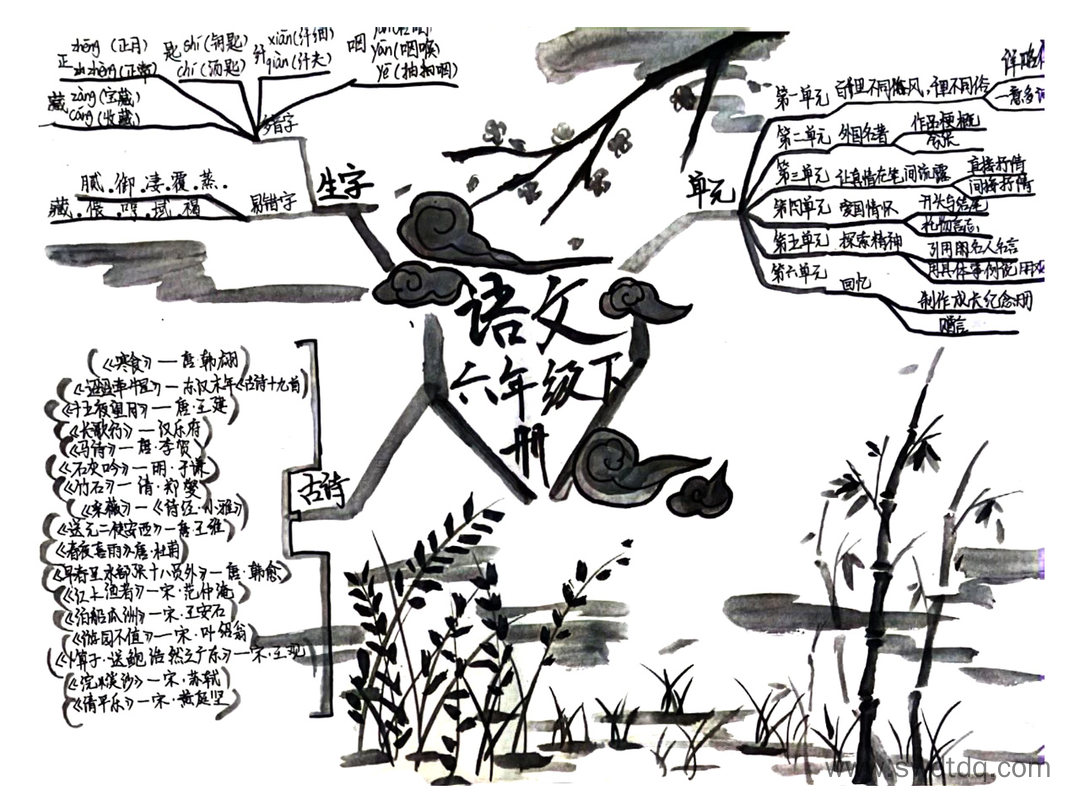 语文
六年级下
册
生字
多音字
正
zhēng (正月)
zhèng (正常)
匙
shi (钥匙)
chí (汤匙)
纤
xiān (纤细)
qiàn (纤夫)
咽
yān (咽喉)
yè
藏
zàng (宝藏)
cáng (收藏)
易错字
腻.御.凄.覆.蒸.
藏.
单元
第一单元
百里不同风,千里不同俗
第二单元
外国名著
作品梗概
第三单元
让真情在笔间流露
直接抒情
间接抒情
第四单元
爱国情怀
开头与结尾
托物言志
第五单元
探索精神
引用用名人名言
用具体事例说
第六单元
回忆
制作成长纪念册
赠言
古诗
《寒食》—唐·韩翃
东汉末年《古诗十九首》
《十五夜望月》—唐·王建
《长歌行》—汉乐府
《马诗》—唐·李贺
《石灰吟》—明·于谦
《竹石》—清·郑燮
《采薇》—《诗经·小雅》
《送元二使安西》—唐·王维
《春夜喜雨》唐·杜甫
《早春呈水部张十八员外》—唐·韩愈
《江上渔者》—宋·范仲淹
《泊船瓜洲》—宋·王安石
《游园不值》—宋·叶绍翁
《卜算子·送鲍浩然之浙东》—宋·王观
《浣溪沙》—宋·苏轼
《清平乐》—宋·黄庭坚
www.swotdq.com